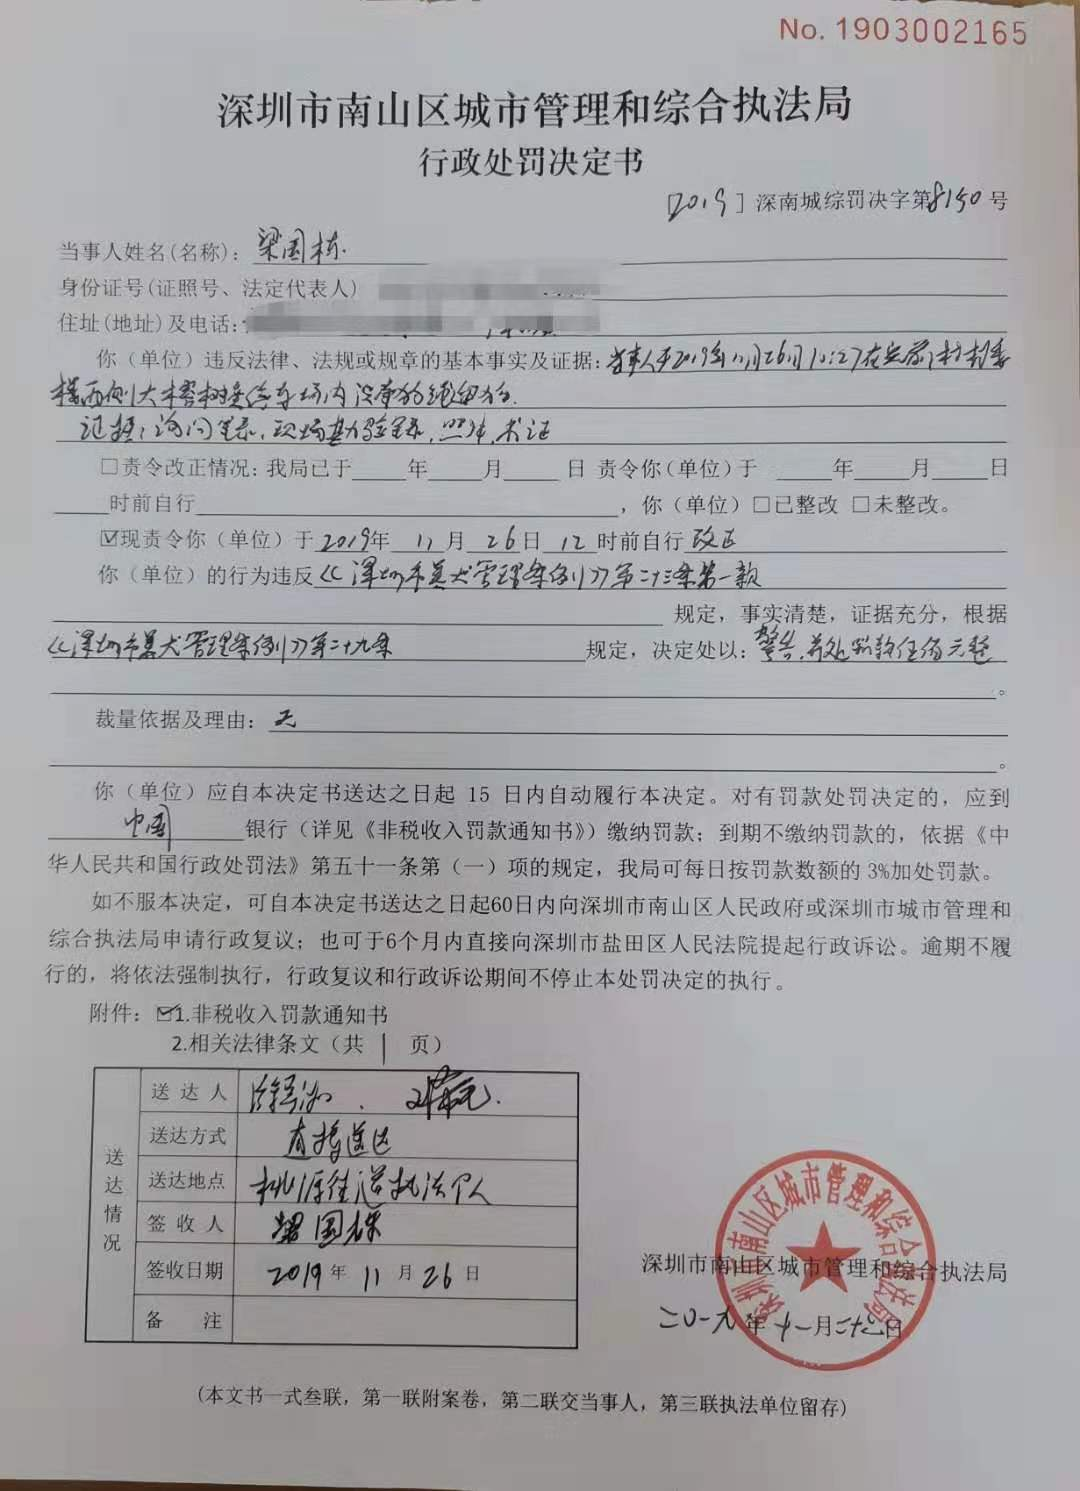 No. 1903002165
深圳市南山区城市管理和综合执法局
行政处罚决定书
[2019]深南城综罚决字第8150号
当事人姓名(名称)：梁国栋
身份证号(证照号、法定代表人)
住址(地址)及电话：
你（单位）违反法律、法规或规章的基本事实及证据：当事人于2019年11月26日10:27在
楼西侧大榕树停车场内没有
证据：询问笔录，现场勘验笔录，照片，书证
□责令改正情况：我局已于 年 月 日 责令你(单位)于 年 月 日
时前自行 ，你（单位）□已整改 □未整改。
☑现责令你（单位）于2019年11月26日12时前自行改正
你（单位）的行为违反《深圳市养犬管理条例》第二十三条第一款
规定，事实清楚，证据充分，根据
《深圳市养犬管理条例》第二十九条 规定，决定处以：警告，并处罚款伍佰元整
。
裁量依据及理由：无
。
你（单位）应自本决定书送达之日起 15 日内自动履行本决定。对有罚款处罚决定的，应到
中国 银行（详见《非税收入罚款通知书》）缴纳罚款；到期不缴纳罚款的，依据《中
华人民共和国行政处罚法》第五十一条第（一）项的规定，我局可每日按罚款数额的 3%加处罚款。
如不服本决定，可自本决定书送达之日起60日内向深圳市南山区人民政府或深圳市城市管理和
综合执法局申请行政复议；也可于6个月内直接向深圳市盐田区人民法院提起行政诉讼。逾期不履
行的，将依法强制执行，行政复议和行政诉讼期间不停止本处罚决定的执行。
附件：☑1.非税收入罚款通知书
2.相关法律条文（共 1 页）
送达情况
送 达 人
送达方式 直接送达
送达地点 桃源街道执法
签 收 人 梁国栋
签收日期 2019年11月26日
备 注
深圳市南山区城市管理和综合执法局
深圳市南山区城市管理和综合执法局
二〇一九年十一月二十六日
(本文书一式叁联，第一联附案卷，第二联交当事人，第三联执法单位留存)